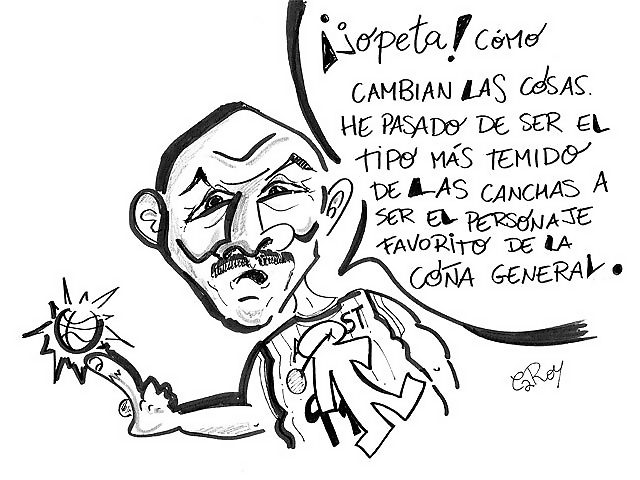 ¡jopeta! CÓMO
CAMBIAN LAS COSAS.
HE PASADO DE SER EL
TIPO MÁS TEMIDO
DE LAS CANCHAS A
SER EL PERSONAJE
FAVORITO DE LA
COÑA GENERAL.